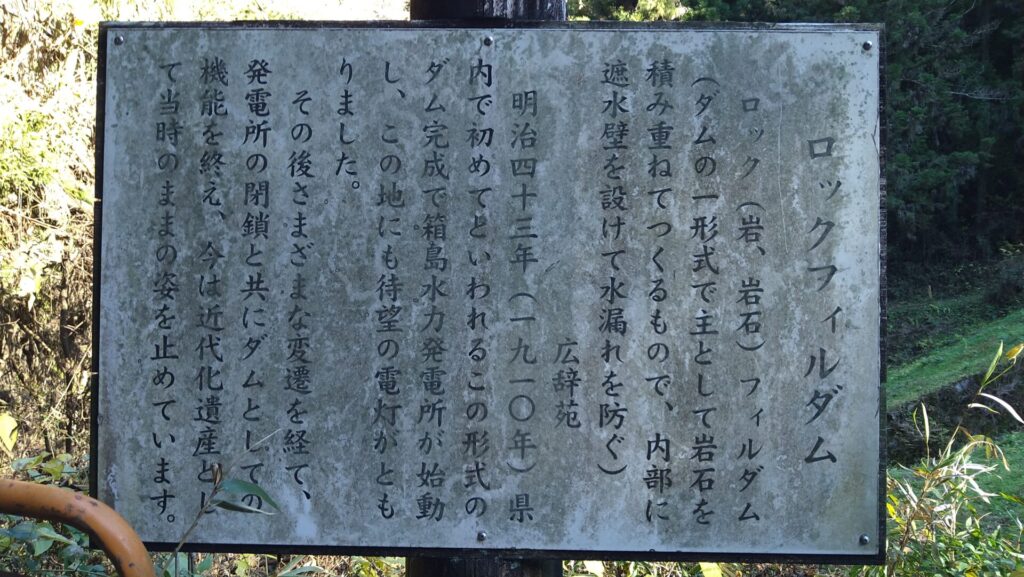 ロックフィルダム
ロック(岩、岩石)フィルダム
(ダムの一形式で主として岩石を
積み重ねてつくるもので、内部に
遮水壁を設けて水漏れを防ぐ)
広辞苑
明治四十三年(一九一〇年)県
内で初めてといわれるこの形式の
ダム完成で箱島水力発電所が始動
し、この地にも待望の電灯がとも
りました。
その後さまざまな変遷を経て、
発電所の閉鎖と共にダムとしての
機能を終え、今は近代化遺産とし
て当時のままの姿を止めています。